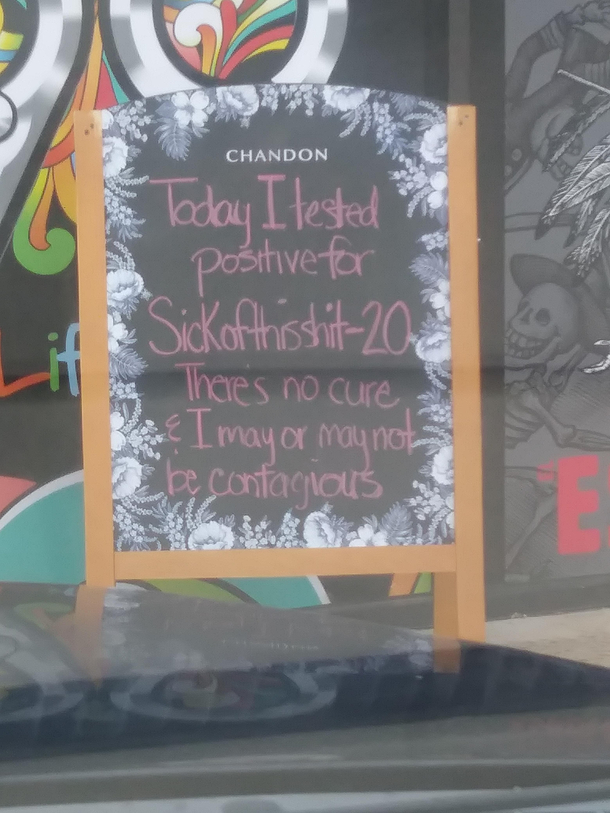 CHANDON
Today I tested
positive for
Sickofthisshit-20
There's no cure
& I may or may not
be contagious
Lif
E